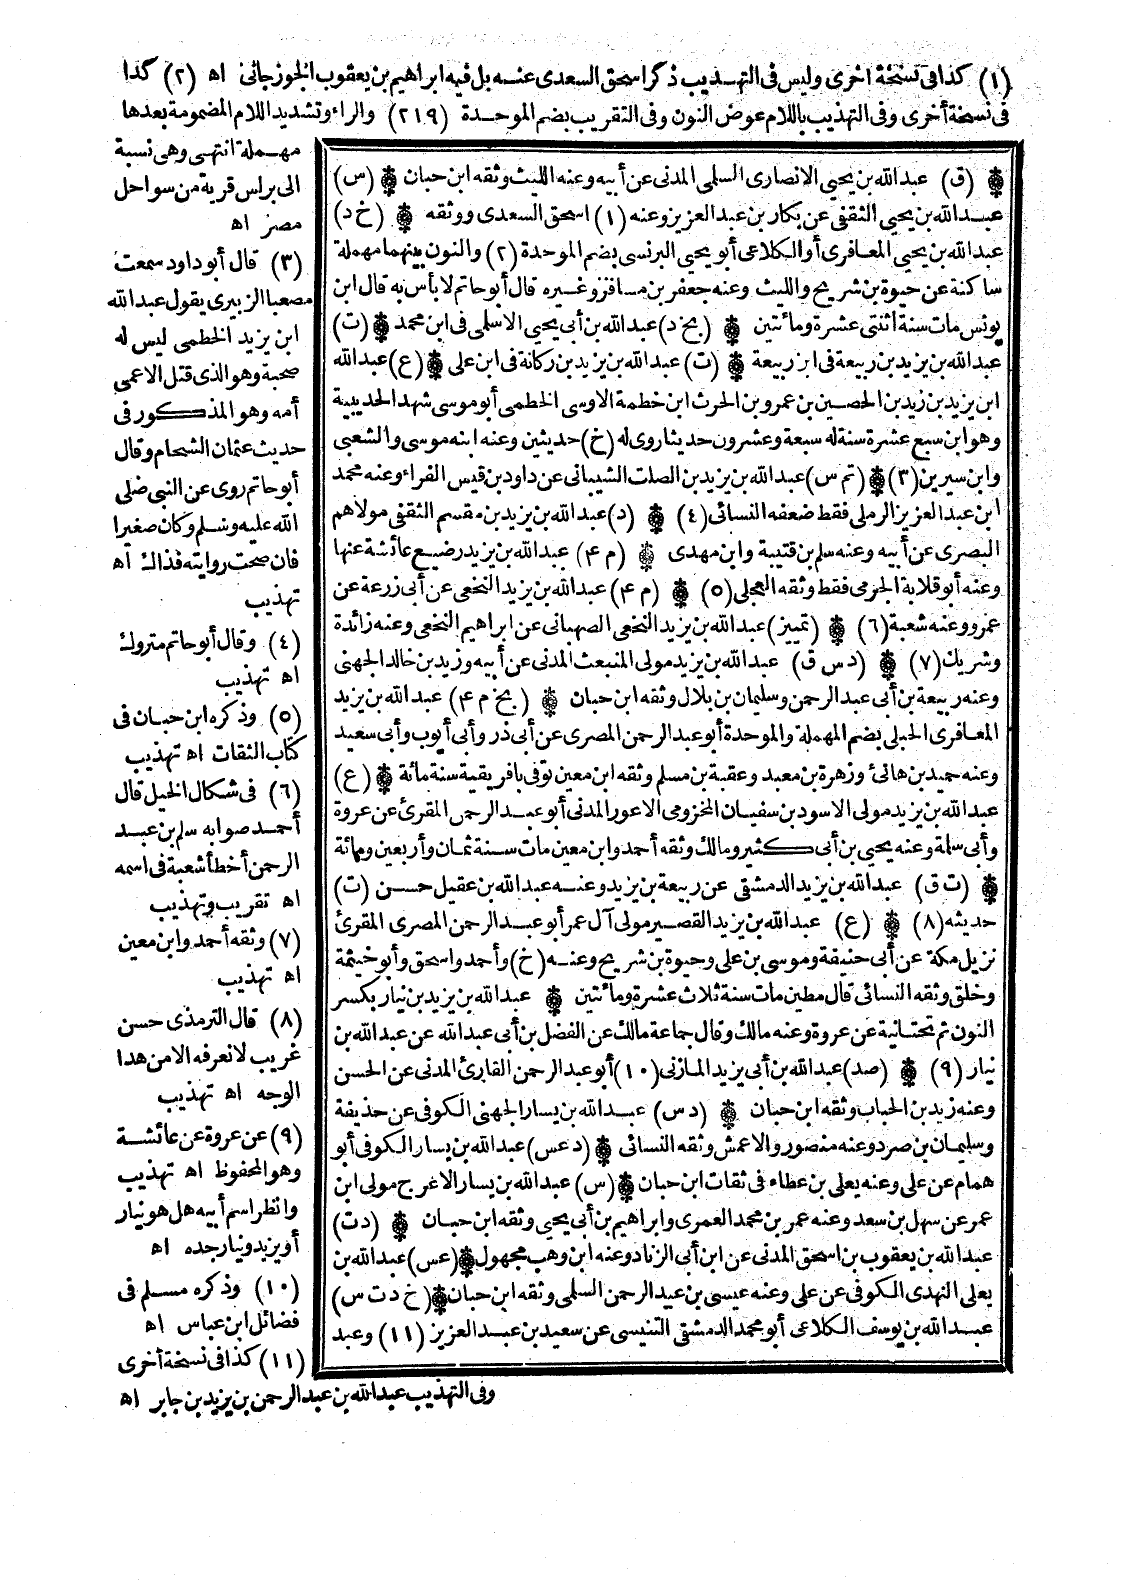 (١) كذا في نسخة اخرى وليس في التهذيب ذكر اسحق السعدى عنه بل فيه ابراهيم بن يعقوب الجوزجاني اه (٢) كذا
في نسخة أخرى وفي التهذيب باللام عوض النون وفي التقريب بضم الموحدة (٢١٩) والراء وتشديد اللام المضمومة بعدها
مهملة انتهى وهى نسبة
الى براس قرية من سواحل
مصر اه
(٣) قال أبوداود سمعت
مصعبا الزبيرى يقول عبد الله
ابن يزيد الخطمى ليس له
صحبة وهو الذى قتل الاعمى
أمه وهو المذكور في
حديث عثمان الشحام وقال
أبوحاتم روى عن النبي صلى
الله عليه وسلم وكان صغيرا
فان صحت روايته فذاك اه
تهذيب
(٤) وقال أبوحاتم متروك
اه تهذيب
(٥) وذكره ابن حبان في
كتاب الثقات اه تهذيب
(٦) في شكال الخيل قال
أحمد صوابه سلم بن عبد
الرحمن أخطأ شعبة في اسمه
اه تقريب وتهذيب
(٧) وثقه أحمد وابن معين
اه تهذيب
(٨) قال الترمذى حسن
غريب لا نعرفه الا من هذا
الوجه اه تهذيب
(٩) عن عروة عن عائشة
وهو المحفوظ اه تهذيب
وانظر اسم أبيه هل هو نيار
أو يزيد ونيار جده اه
(١٠) وذكره مسلم في
فضائل ابن عباس اه
(١١) كذا في نسخة أخرى
وفي التهذيب عبد الله بن عبد الرحمن بن يزيد بن جابر اه
(ق) عبد الله بن يحيى الانصارى السلمى المدنى عن أبيه وعنه الليث وثقه ابن حبان (س)
عبد الله بن يحيى الثقفى عن بكار بن عبد العزيز وعنه (١) اسحق السعدى ووثقه (خ د)
عبد الله بن يحيى المعافرى أو الكلاعى أبو يحيى البرنسى بضم الموحدة (٢) والنون بينهما مهملة
ساكنة عن حيوة بن شريح والليث وعنه جعفر بن مسافر وغيره قال أبوحاتم لا بأس به قال ابن
يونس مات سنة اثنتى عشرة ومائتين (بخ د) عبد الله بن أبى يحيى الاسلمى في ابن محمد (ت)
عبد الله بن يزيد بن ربيعة في ابن ربيعة (ت) عبد الله بن يزيد بن ركانة في ابن على (ع) عبد الله
ابن يزيد بن زيد بن الحصين بن عمرو بن الحرث ابن خطمة الاوسى الخطمى أبو موسى شهد الحديبية
وهو ابن سبع عشرة سنة له سبعة وعشرون حديثا روى له (خ) حديثين وعنه ابنه موسى والشعبى
وابن سيرين (٣) (تم س) عبد الله بن يزيد بن الصلت الشيبانى عن داود بن قيس الفراء وعنه محمد
ابن عبد العزيز الرملى فقط ضعفه النسائى (٤) (د) عبد الله بن يزيد بن مقسم الثقفى مولاهم
البصرى عن أبيه وعنه سلم بن قتيبة وابن مهدى (م ٤) عبد الله بن يزيد رضيع عائشة عنها
وعنه أبو قلابة الجرمى فقط وثقه العجلى (٥) (م ٤) عبد الله بن يزيد النخعى عن أبى زرعة عن
عمرو وعنه شعبة (٦) (تمييز) عبد الله بن يزيد النخعى الصهبانى عن ابراهيم النخعى وعنه زائدة
وشريك (٧) (د س ق) عبد الله بن يزيد مولى المنبعث المدنى عن أبيه وزيد بن خالد الجهنى
وعنه ربيعة بن أبى عبد الرحمن وسليمان بن بلال وثقه ابن حبان (بخ م ٤) عبد الله بن يزيد
المعافرى الحبلى بضم المهملة والموحدة أبو عبد الرحمن المصرى عن أبى ذر وأبى أيوب وأبى سعيد
وعنه حميد بن هانئ وزهرة بن معبد وعقبة بن مسلم وثقه ابن معين توفى بافريقية سنة مائة (ع)
عبد الله بن يزيد مولى الاسود بن سفيان المخزومى الاعور المدنى أبو عبد الرحمن المقرئ عن عروة
وأبى سلمة وعنه يحيى بن أبى كثير ومالك وثقه أحمد وابن معين مات سنة ثمان وأربعين ومائة
(ت ق) عبد الله بن يزيد الدمشقى عن ربيعة بن يزيد وعنه عبد الله بن عقيل حسن (ت)
حديثه (٨) (ع) عبد الله بن يزيد القصير مولى آل عمر أبو عبد الرحمن المصرى المقرئ
نزيل مكة عن أبى حنيفة وموسى بن على وحيوة بن شريح وعنه (خ) وأحمد واسحق وأبو خيثمة
وخلق وثقه النسائى قال مطين مات سنة ثلاث عشرة ومائتين عبد الله بن يزيد بن نيار بكسر
النون ثم تحتانية عن عروة وعنه مالك وقال جماعة مالك عن الفضل بن أبى عبد الله عن عبد الله بن
نيار (٩) (صد) عبد الله بن أبى يزيد المازنى (١٠) أبو عبد الرحمن القارئ المدنى عن الحسن
وعنه زيد بن الحباب وثقه ابن حبان (د س) عبد الله بن يسار الجهنى الكوفى عن حذيفة
وسليمان بن صرد وعنه منصور والاعمش وثقه النسائى (د عس) عبد الله بن يسار الكوفى أبو
همام عن على وعنه يعلى بن عطاء في ثقات ابن حبان (س) عبد الله بن يسار الاعرج مولى ابن
عمر عن سهل بن سعد وعنه عمر بن محمد العمرى وابراهيم بن أبى يحيى وثقه ابن حبان (دت)
عبد الله بن يعقوب بن اسحق المدنى عن ابن أبى الزناد وعنه ابن وهب مجهول (عس) عبد الله بن
يعلى النهدى الكوفى عن على وعنه عيسى بن عبد الرحمن السلمى وثقه ابن حبان (خ د ت س)
عبد الله بن يوسف الكلاعى أبو محمد الدمشقى التنيسى عن سعيد بن عبد العزيز (١١) وعبد